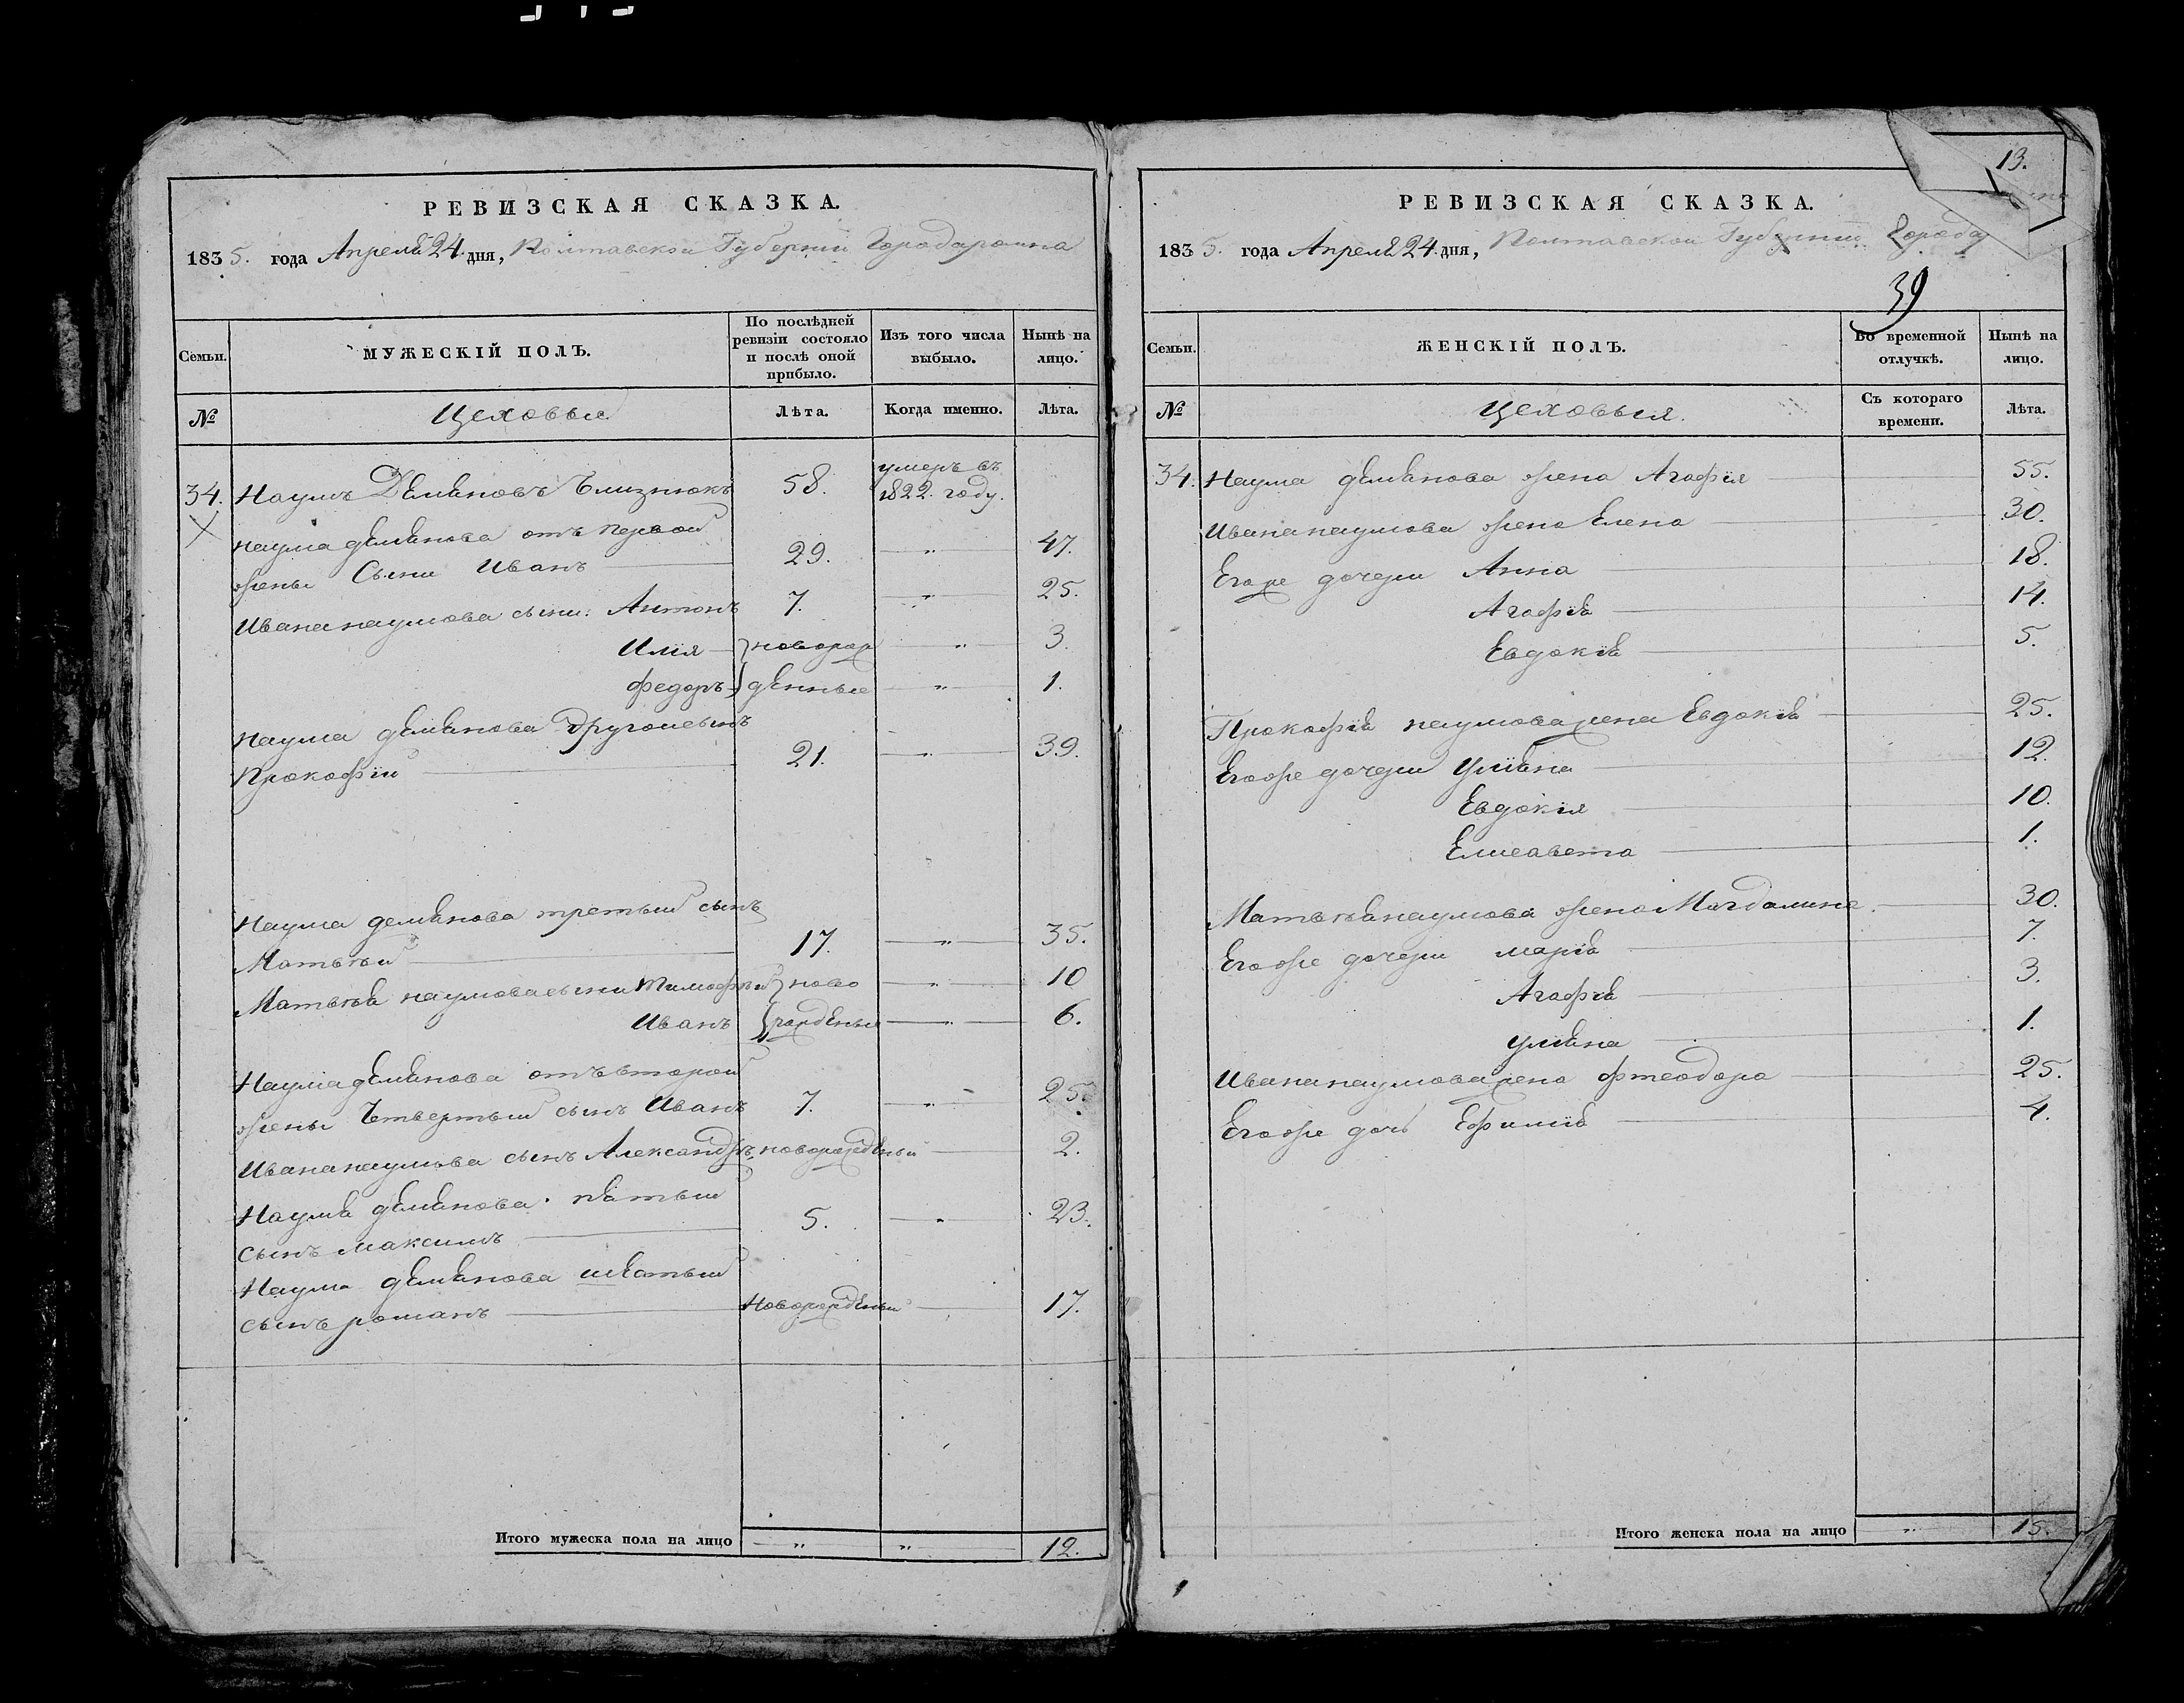 РЕВИЗСКАЯ СКАЗКА.
1835. года Апреля 24. дня, Полтавской Губернии Города Ромна
Семьи.
МУЖЕСКІЙ ПОЛЪ.
По послѣдней ревизіи состояло и послѣ оной прибыло.
Изъ того числа выбыло.
Нынѣ на лицо.
№
Цеховые
Лѣта.
Когда именно.
Лѣта.
34. Наумъ Демяновъ Близнюкъ 58. умеръ въ 1822. году.
Наума демянова отъ первой
жены Сыни Иванъ 29. „ 47.
Ивана наумова сыни: Антонъ 7. „ 25.
Илія новорож „ 3.
федоръ денные „ 1.
Наума демянова другой сынъ
Прокофій 21. „ 39.
Наума демянова третый сынъ
Матвѣй 17. „ 35.
Матвѣя наумова сыни Тимофѣй ново „ 10
Иванъ рожденые „ 6.
Наума демянова отъ второй
жены Четвертый сынъ Иванъ 7. „ 25.
Ивана наумова сынъ Александръ новорожденый 2.
Наума демянова пятый
сынъ Максимъ 5. „ 23.
Наума демянова шестый
сынъ романъ Новорожденый 17.
Итого мужеска пола на лицо „ „ 12.
13.
РЕВИЗСКАЯ СКАЗКА.
1835. года Апреля 24. дня, Полтавской Губерніи Города
39
Семьи.
ЖЕНСКІЙ ПОЛЪ.
Во временной отлучкѣ.
Нынѣ на лицо.
№
Цеховыя.
Съ котораго времени.
Лѣта.
34. Наума демянова жена Агафія 55.
Ивана наумова жена Елена 30.
Его же дочери Анна 18.
Агафія 14.
Евдокія 5.
Прокофія наумова жена Евдокія 25.
Его же дочери Уліяна 12.
Евдокія 10.
Елисавета 1.
Матвѣя наумова жена Магдалина 30.
Его же дочери марія 7.
Агафія 3.
Уліяна 1.
Ивана наумова жена фтеодора 25.
Его же дочь Ефимія 4.
Итого женска пола на лицо „ 15.